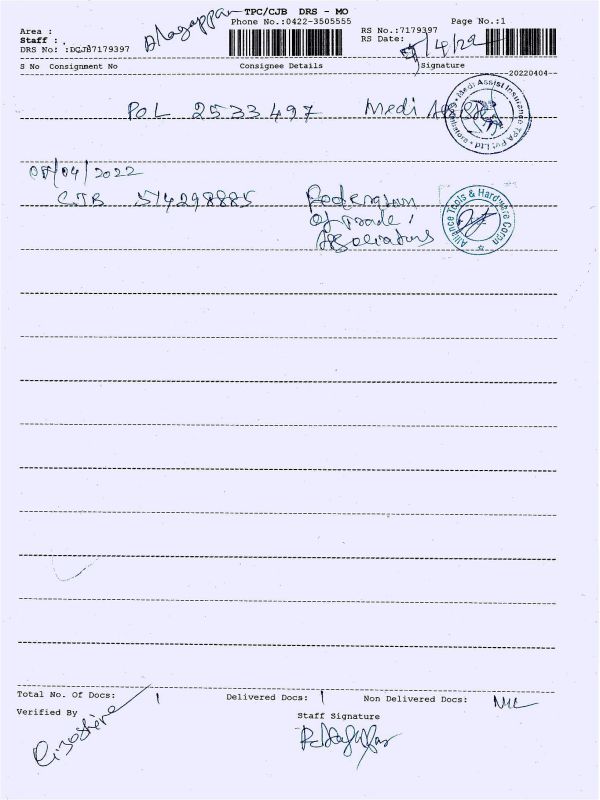 Alagappan TPC/CJB DRS - MO
Phone No.:0422-3505555
Page No.:1
Area :
RS No.:7179397
Staff : .
RS Date: 5/4/22
DRS No: :DCJB7179397
S No Consignment No Consignee Details Signature
20220404
POL 2533497 Medi Assist
Medi Assist Insurance TPA Pvt Ltd
05/04/2022
CJB 514298885 Federation
of Trade
Associations
Alliance Tools & Hardware Corpn
Total No. Of Docs: 1 Delivered Docs: 1 Non Delivered Docs: NIL
Verified By
Staff Signature